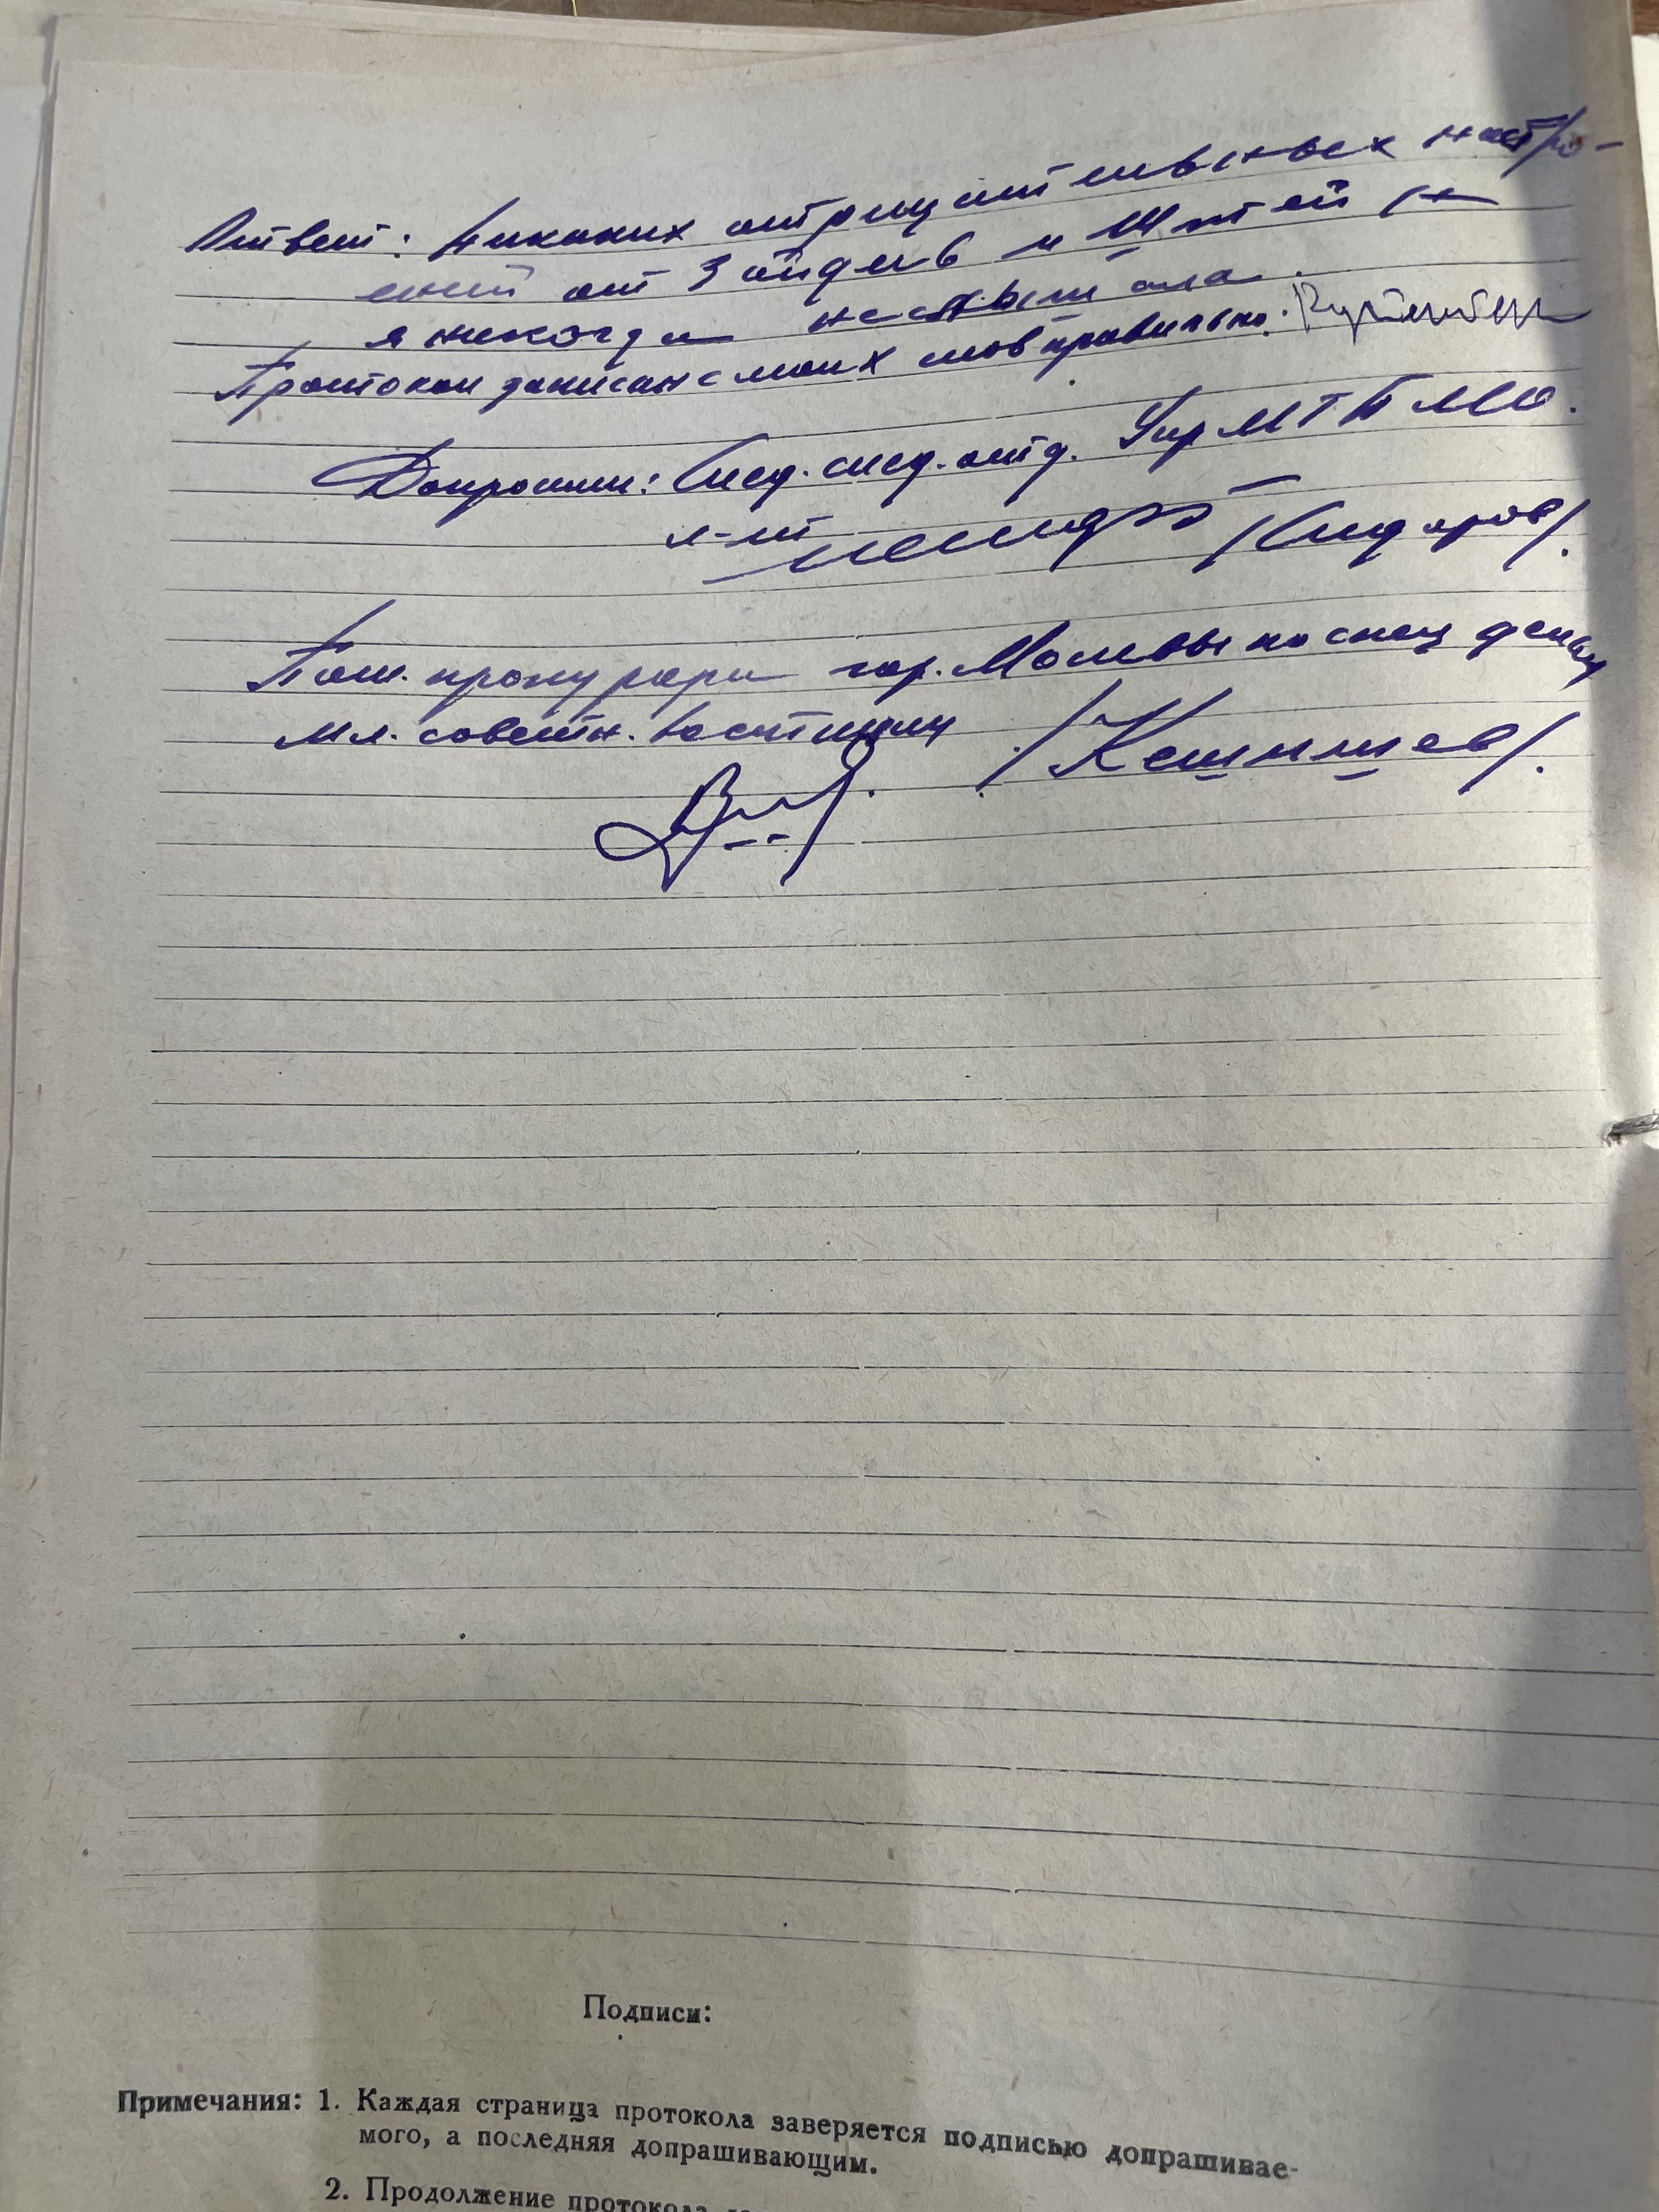 Ответ: Никаких отрицательных настро-
ений от Зайдель и Штей
я никогда не слышала.
Протокол записан с моих слов правильно.
Допросил: След. след. отд. Упр МГБ МО.
л-нт /Сидоров/.
Пом. прокурора гор. Москвы по спец делам
мл. советн. юстиции /Кешишев/.
Подписи:
Примечания: 1. Каждая страница протокола заверяется подписью допрашивае-
мого, а последняя допрашивающим.
2. Продолжение протокола